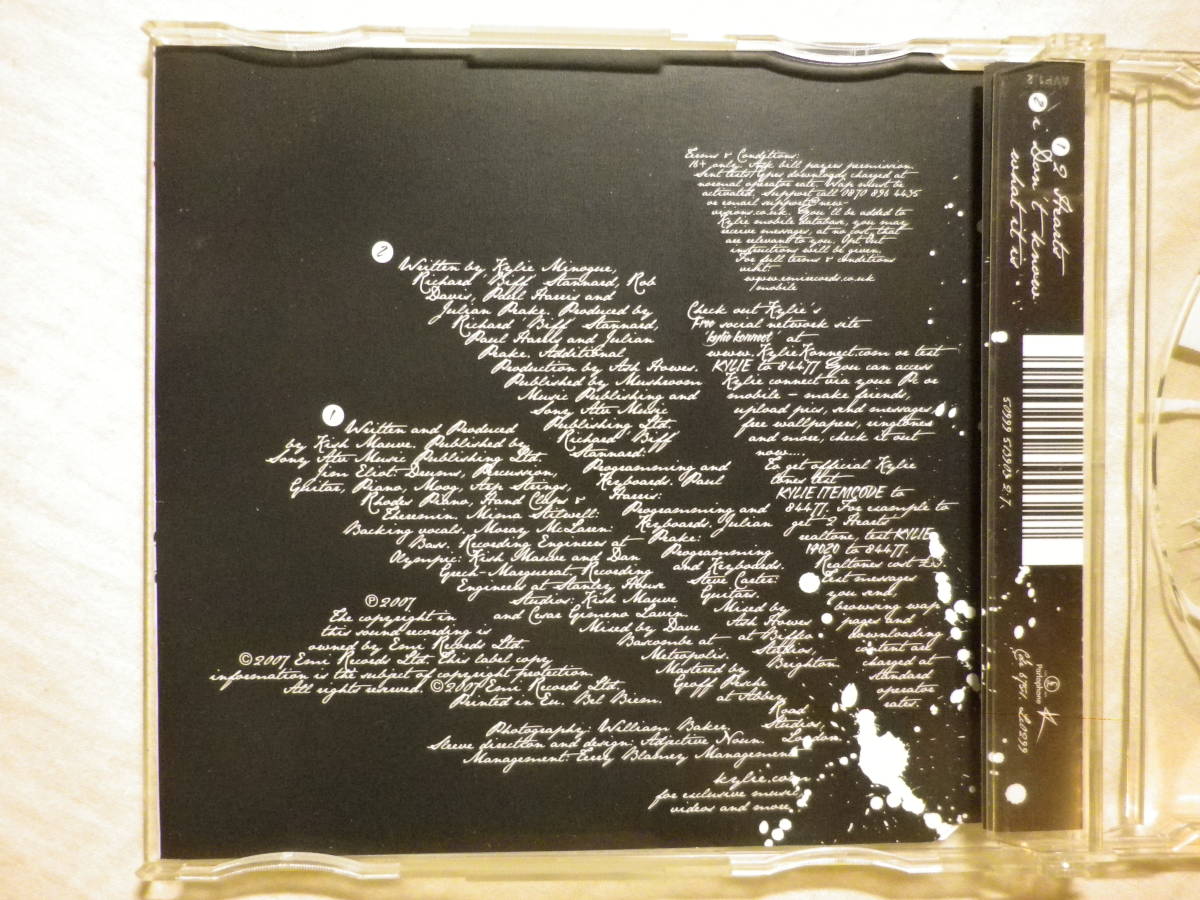 Terms & Conditions:
18+ only. Ask bill payers permission.
Sent texts/types downloads charged at
normal operator rate. Wap must be
activated. Support call 0870 896 4435
or email support@new-
visions.co.uk. You'll be added to
Kylie mobile database, you may
receive messages, at no cost that
are relevant to you. Opt Out
instructions will be given.
For full terms & conditions
visit:
www.emirecords.co.uk
/mobile
Check out Kylie's
Free social network site
'kylie konnect' at
www.KylieKonnect.com or text
KYLIE to 84477 You can access
Kylie connect via your Pc or
mobile - make friends,
upload pics, send messages,
free wallpapers, ringtones
and more, check it out
now....
To get official Kylie
tones text
KYLIE ITEMCODE to
84477. For example to
get 2 Hearts
realtone, text KYLIE
19020 to 84477.
Realtones cost £3.
Text messages
you send,
browsing wap
pages and
downloading
content are
charged at
standard
operator
rates.
2 Written by Kylie Minogue,
Richard 'Biff' Stannard, Rob
Davis, Paul Harris and
Julian Peake. Produced by
Richard 'Biff' Stannard,
Paul Harris and Julian
Peake. Additional
Production by Ash Howes.
Published by Mushroom
Music Publishing and
Sony Atv Music
Publishing Ltd.
Richard 'Biff'
Stannard:
Programming and
Keyboards. Paul
Harris:
Programming and
Keyboards. Julian
Peake:
Programming
and Keyboards.
Steve Carter:
Guitars.
Mixed by
Ash Howes
at Biffco
Studios,
Brighton.
1 Written and Produced
by Kish Mauve. Published by
Sony Atv Music Publishing Ltd.
Jim Eliot: Drums, Percussion,
Guitar, Piano, Moog, Arp Strings,
Rhodes Piano, Hand Claps &
Theremin. Mima Stilwell:
Backing vocals. Moray McLaren:
Bass. Recording Engineers at
Olympic: Kish Mauve and Dan
Grech-Marguerat. Recording
Engineers at Stanley House
Studios: Kish Mauve
and Cesar Gimeno Lavin.
Mixed by Dave
Bascombe at
Metropolis.
Mastered by
Geoff Pesche
at Abbey
Road
Studios,
London.
℗2007
The copyright in
this sound recording is
owned by Emi Records Ltd.
©2007 Emi Records Ltd. This label copy
information is the subject of copyright protection.
All rights reserved. ©2007 Emi Records Ltd.
Printed in Eu. Bel Biem.
Photography: William Baker.
Sleeve direction and design: Adjective Noun.
Management: Terry Blamey Management
kylie.com
for exclusive music,
videos and more.
1 2 Hearts
2 i Don't know
what it is
AVP1.2
50999 513903 2 7.
Parlophone